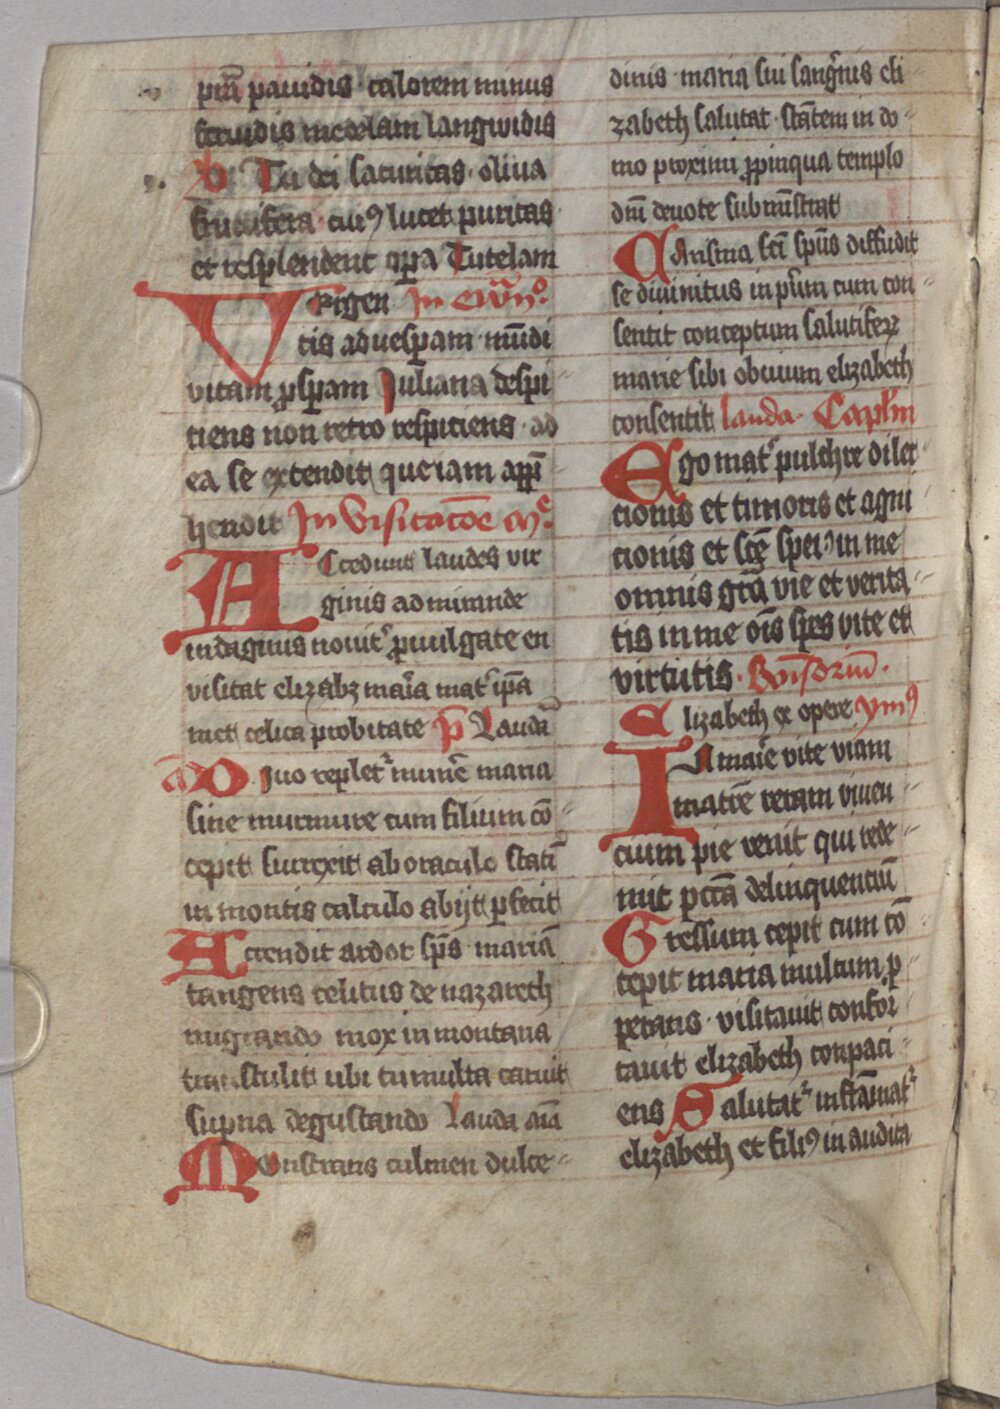 piū pauidis calorem minus
feruidis medelam langwidis
V Tu dei saturitas oliua
fructifera cuiꝯ lucet puritas
et resplendent opera Tutelam
Erigen In euāno.
Vtis ad uesperam mūdi
vitam ꝓsperam Juliana despi
ciens non retro respiciens ad
ea se extendit que iam appre
hendit In Visitacōe Mͤ.
Accedunt laudes vir
ginis admirande
indaginis nouitᷣ ꝓmulgate en
visitat elizabꝫ maria matᷣ ipsa
met celica probitate p̄ Laudā
ā Diuo repletᷣ munere maria
sine murmure cum filium cō
cepit surrexit ab oraculo statī
in montis calculo abijt ꝑfecit
Accendit ardor spūs mariā
tangens celitus de nazareth
migrando mox in montana
transtulit ubi tumulta caruit
superna degustando Lauda aīa
Monstrans culmen dulce
dinis maria sui sanguinis eli
zabeth salutat stātem in do
mo proximi ꝓpinqua templo
dn̄i deuote submīstrat
Carisma scī spūs diffudit
se diuinitus in puerum cum con
sentit conceptum salutiferꝝ
marie sibi obuium elizabeth
consentit lauda Caplm
Ego matᷣ pulchre dilec
tionis et timoris et agni
cionis et scē spei in me
omnis grā vie et verita
tis in me oīs spes vite et
virtutis. Rn̄sorium.
Elizabeth ex opere ymꝯ
In marie vite viam
matrē veram viuen
cium pie venit qui rede
mit pctā delinquentiū
Gressum cepit cum cō
cepit maria multum ꝓ
perans visitauit confor
tauit elizabeth conpaci
ens Salutatᷣ inflāmatᷣ
elizabeth et filiꝯ in audita